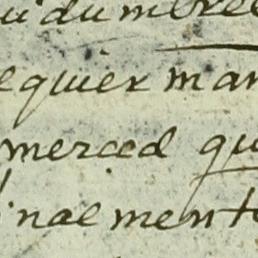 equier man
merced qu
nalmente